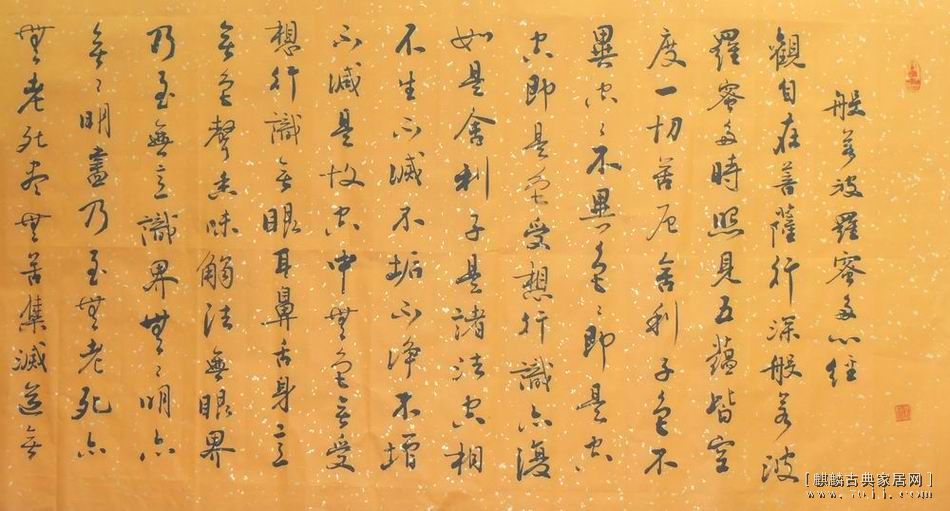 般若波羅蜜多心經
觀自在菩薩行深般若波
羅蜜多時照見五蘊皆空
度一切苦厄舍利子色不
異空〻不異色〻即是空
空即是色受想行識亦復
如是舍利子是諸法空相
不生不滅不垢不淨不增
不減是故空中無色無受
想行識無眼耳鼻舌身意
無色聲香味觸法無眼界
乃至無意識界無〻明亦
無〻明盡乃至無老死亦
無老死盡無苦集滅道無
[麒麟古典家居网]